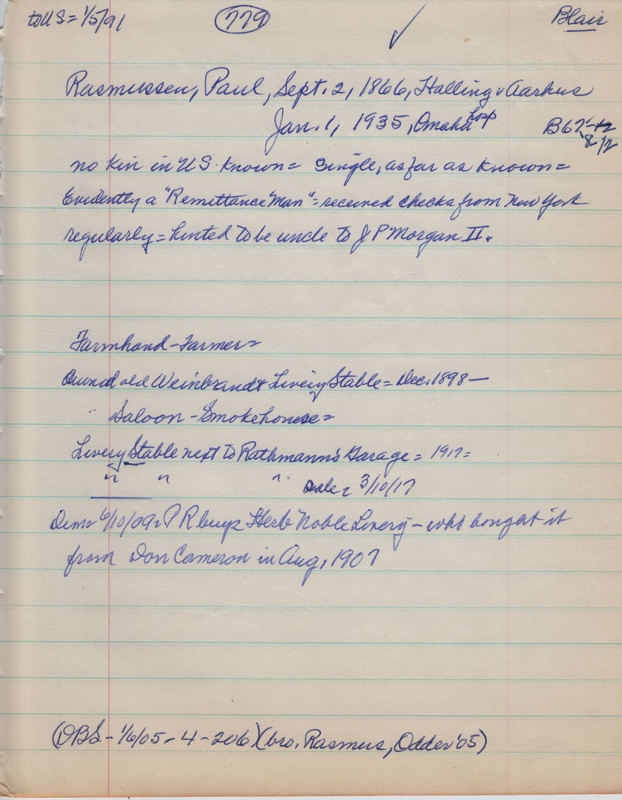 to US = 1/5/91 779 Blair
Rasmussen, Paul, Sept. 2, 1866, Halling v Aarhus
Jan. 1, 1935, Omaha Hosp B62-
8/2
no kin in US known = Single, as far as known =
Evidently a "Remittance Man" = received checks from New York
regularly = hinted to be uncle to J P Morgan II.
Farmhand - Farmer =
Owned old Weinbrandt Livery Stable = Dec. 1898 —
" Saloon - Smokehouse =
Livery Stable next to Rathmann's Garage = 1917 =
" " " sale = 3/10/17
Dem = 6/10/09 = P R buys Herb Noble Livery - who bought it
from Don Cameron in Aug, 1907
(DBS - 1/6/05 - 4 - 206) (bro. Rasmus, Odder '05)